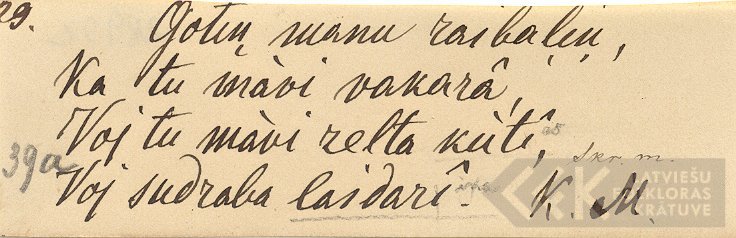 29. Gotiņ manu raibaliņ,
Ka tu màvi vakarâ,
Voj tu màvi zelta kùtî,
39a
Voj sudraba laidarî. K. M.
LATVIEŠU
FOLKLORAS
KRĀTUVE